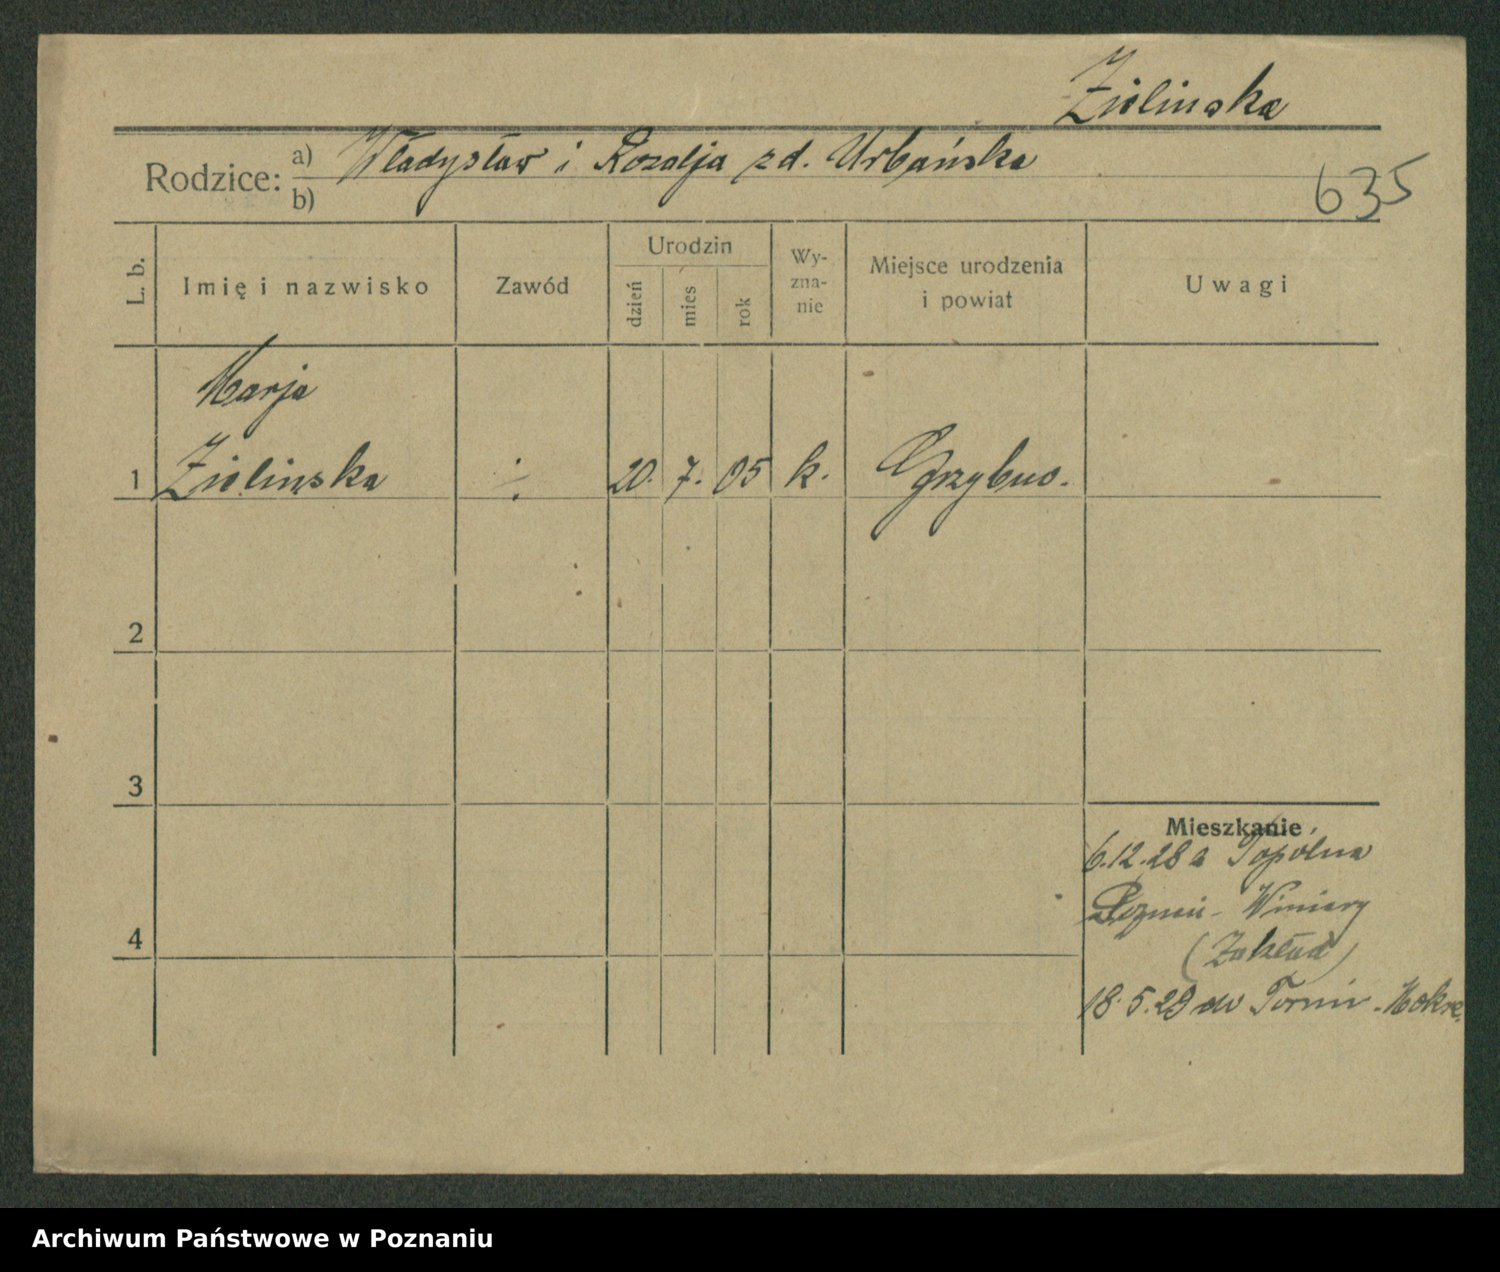 Zielinska
Rodzice: a) Władysław i Rozalja zd. Urbańska
b)
635
L. b.
Imię i nazwisko
Zawód
Urodzin
dzień
mies
rok
Wy-
zna-
nie
Miejsce urodzenia
i powiat
Uwagi
Marja
1 Zielinska ./. 20. 7. 05 k. Grzybno.
2
3
4
Mieszkanie
6.12.28 a Topólna
Poznań - Winiary
(Zakład)
18.5.29 do Toruń - Mokre.
Archiwum Państwowe w Poznaniu